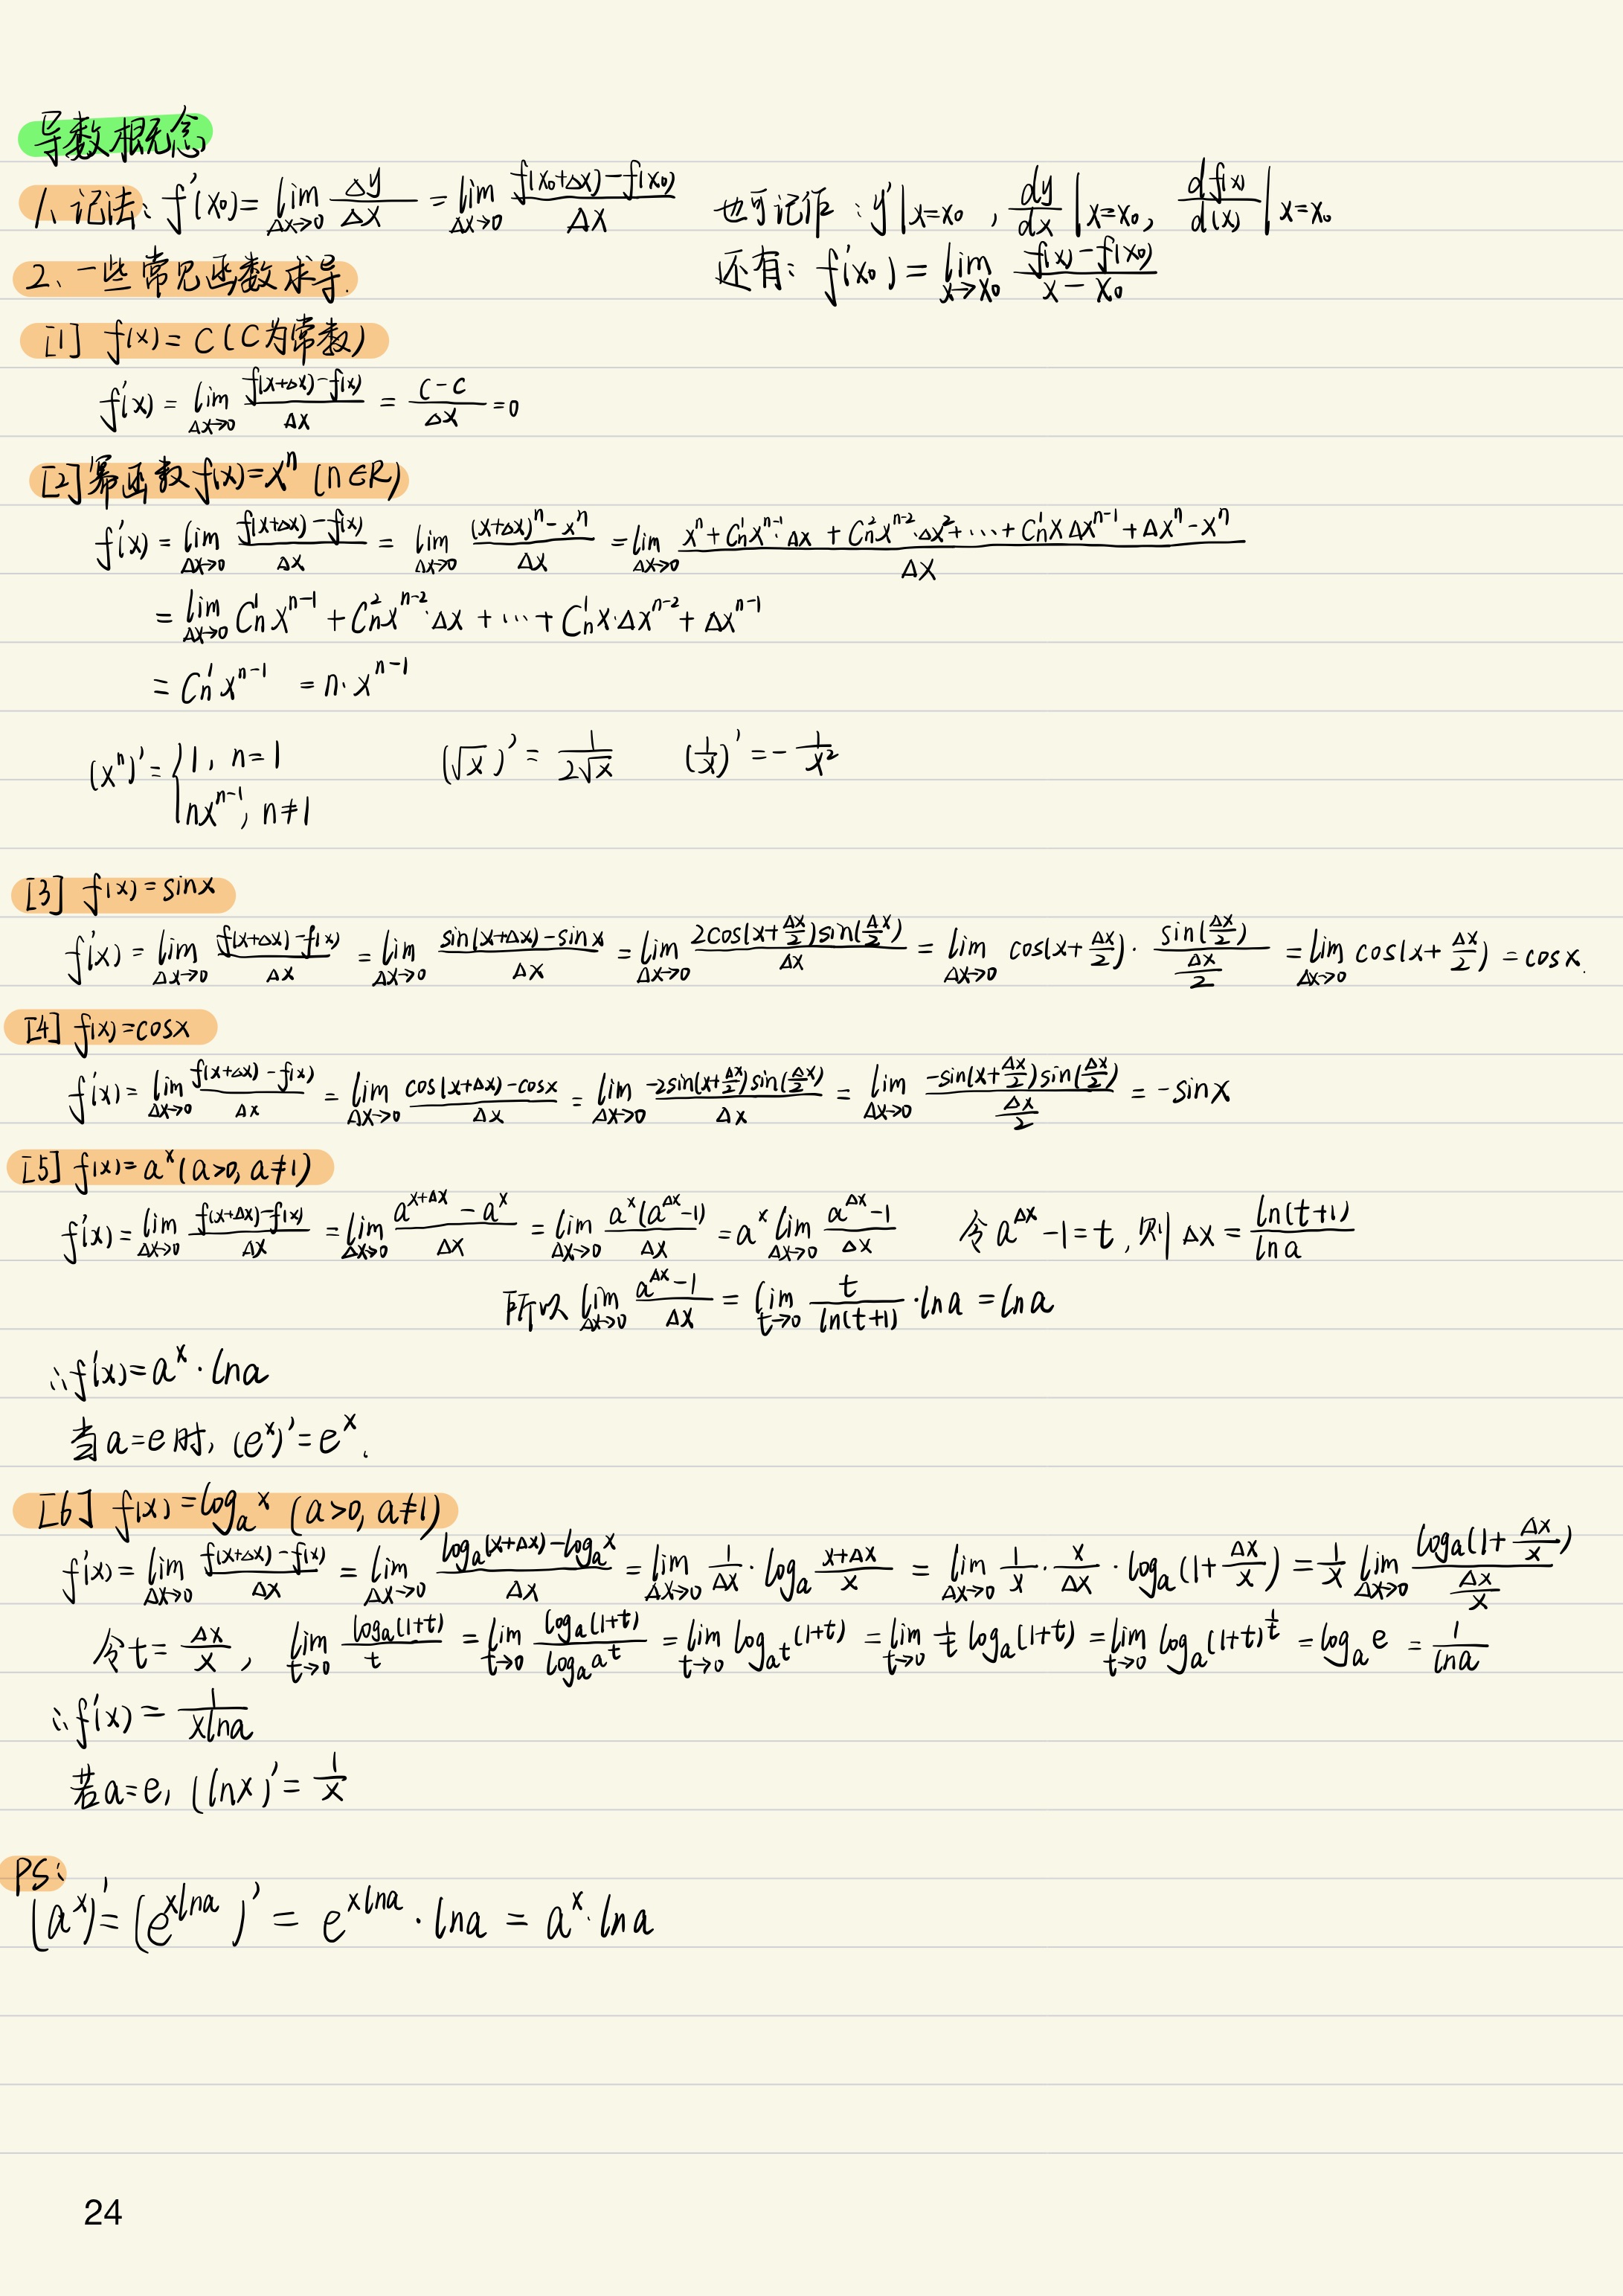 导数概念
1、记法：f'(x₀)=lim_{Δx→0} Δy/Δx = lim_{Δx→0} (f(x₀+Δx)-f(x₀))/Δx 也可记作：y'|x=x₀ , dy/dx|x=x₀, df(x)/d(x)|x=x₀
还有：f'(x₀)=lim_{x→x₀} (f(x)-f(x₀))/(x-x₀)
2、一些常见函数求导.
[1] f(x)=C (C为常数)
f'(x)=lim_{Δx→0} (f(x+Δx)-f(x))/Δx = (C-C)/Δx =0
[2] 幂函数 f(x)=xⁿ (n∈R)
f'(x)=lim_{Δx→0} (f(x+Δx)-f(x))/Δx = lim_{Δx→0} ((x+Δx)^n-x^n)/Δx = lim_{Δx→0} (x^n+C_n^1 x^{n-1}·Δx+C_n^2 x^{n-2}·Δx^2+…+C_n^1 xΔx^{n-1}+Δx^n-x^n)/Δx
=lim_{Δx→0} C_n^1 x^{n-1}+C_n^2 x^{n-2}·Δx+…+C_n^1 x·Δx^{n-2}+Δx^{n-1}
=C_n^1 x^{n-1} =n·x^{n-1}
(x^n)'={1, n=1 (√x)'=1/(2√x) (1/x)'=-1/x²
nx^{n-1}, n≠1
[3] f(x)=sinx
f'(x)=lim_{Δx→0} (f(x+Δx)-f(x))/Δx = lim_{Δx→0} (sin(x+Δx)-sinx)/Δx = lim_{Δx→0} (2cos(x+Δx/2)sin(Δx/2))/Δx = lim_{Δx→0} cos(x+Δx/2)·sin(Δx/2)/(Δx/2) = lim_{Δx→0} cos(x+Δx/2) = cosx.
[4] f(x)=cosx
f'(x)=lim_{Δx→0} (f(x+Δx)-f(x))/Δx = lim_{Δx→0} (cos(x+Δx)-cosx)/Δx = lim_{Δx→0} (-2sin(x+Δx/2)sin(Δx/2))/Δx = lim_{Δx→0} (-sin(x+Δx/2)sin(Δx/2))/(Δx/2) = -sinx
[5] f(x)=a^x (a>0, a≠1)
f'(x)=lim_{Δx→0} (f(x+Δx)-f(x))/Δx = lim_{Δx→0} (a^{x+Δx}-a^x)/Δx = lim_{Δx→0} (a^x(a^{Δx}-1))/Δx = a^x lim_{Δx→0} (a^{Δx}-1)/Δx 令a^{Δx}-1=t, 则Δx=ln(t+1)/lna
所以 lim_{Δx→0} (a^{Δx}-1)/Δx = lim_{t→0} t/ln(t+1)·lna =lna
∴f'(x)=a^x·lna
当a=e时, (e^x)'=e^x.
[6] f(x)=log_a x (a>0, a≠1)
f'(x)=lim_{Δx→0} (f(x+Δx)-f(x))/Δx = lim_{Δx→0} (log_a(x+Δx)-log_a x)/Δx = lim_{Δx→0} 1/Δx·log_a (x+Δx)/x = lim_{Δx→0} 1/x·x/Δx·log_a(1+Δx/x) = 1/x lim_{Δx→0} log_a(1+Δx/x)/(Δx/x)
令t=Δx/x, lim_{t→0} log_a(1+t)/t = lim_{t→0} log_a(1+t)/log_a a^t = lim_{t→0} log_{a^t}(1+t) = lim_{t→0} 1/t log_a(1+t) = lim_{t→0} log_a(1+t)^{1/t} = log_a e = 1/lna
∴f'(x)=1/(xlna)
若a=e, (lnx)'=1/x
PS:
(a^x)'=(e^{xlna})'=e^{xlna}·lna=a^x·lna
24